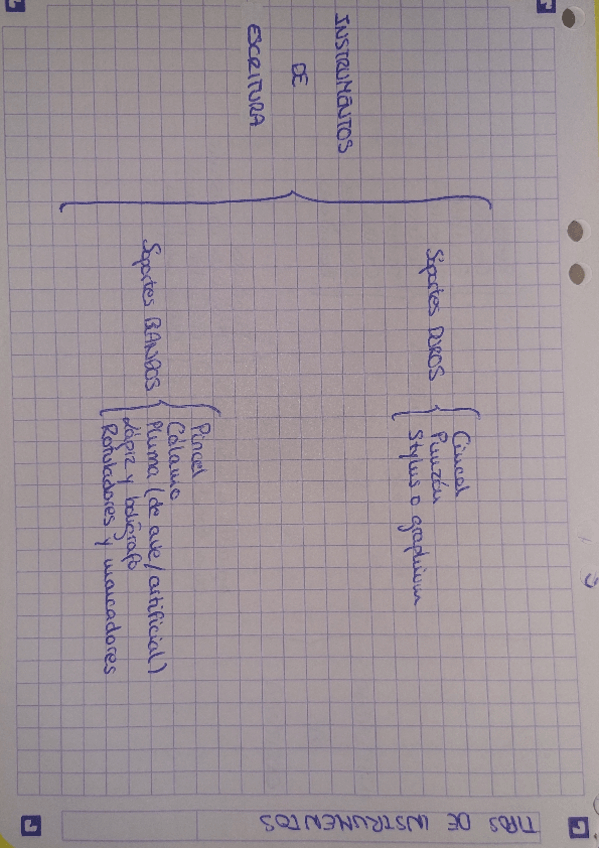 TIPOS DE INSTRUMENTOS
INSTRUMENTOS
DE
ESCRITURA
Soportes DUROS
Cincel
Punzón
Stylus o graphium
Soportes BLANDOS
Pincel
Cálamo
Pluma (de ave/artificial)
Lápiz y bolígrafo
Rotuladores y marcadores